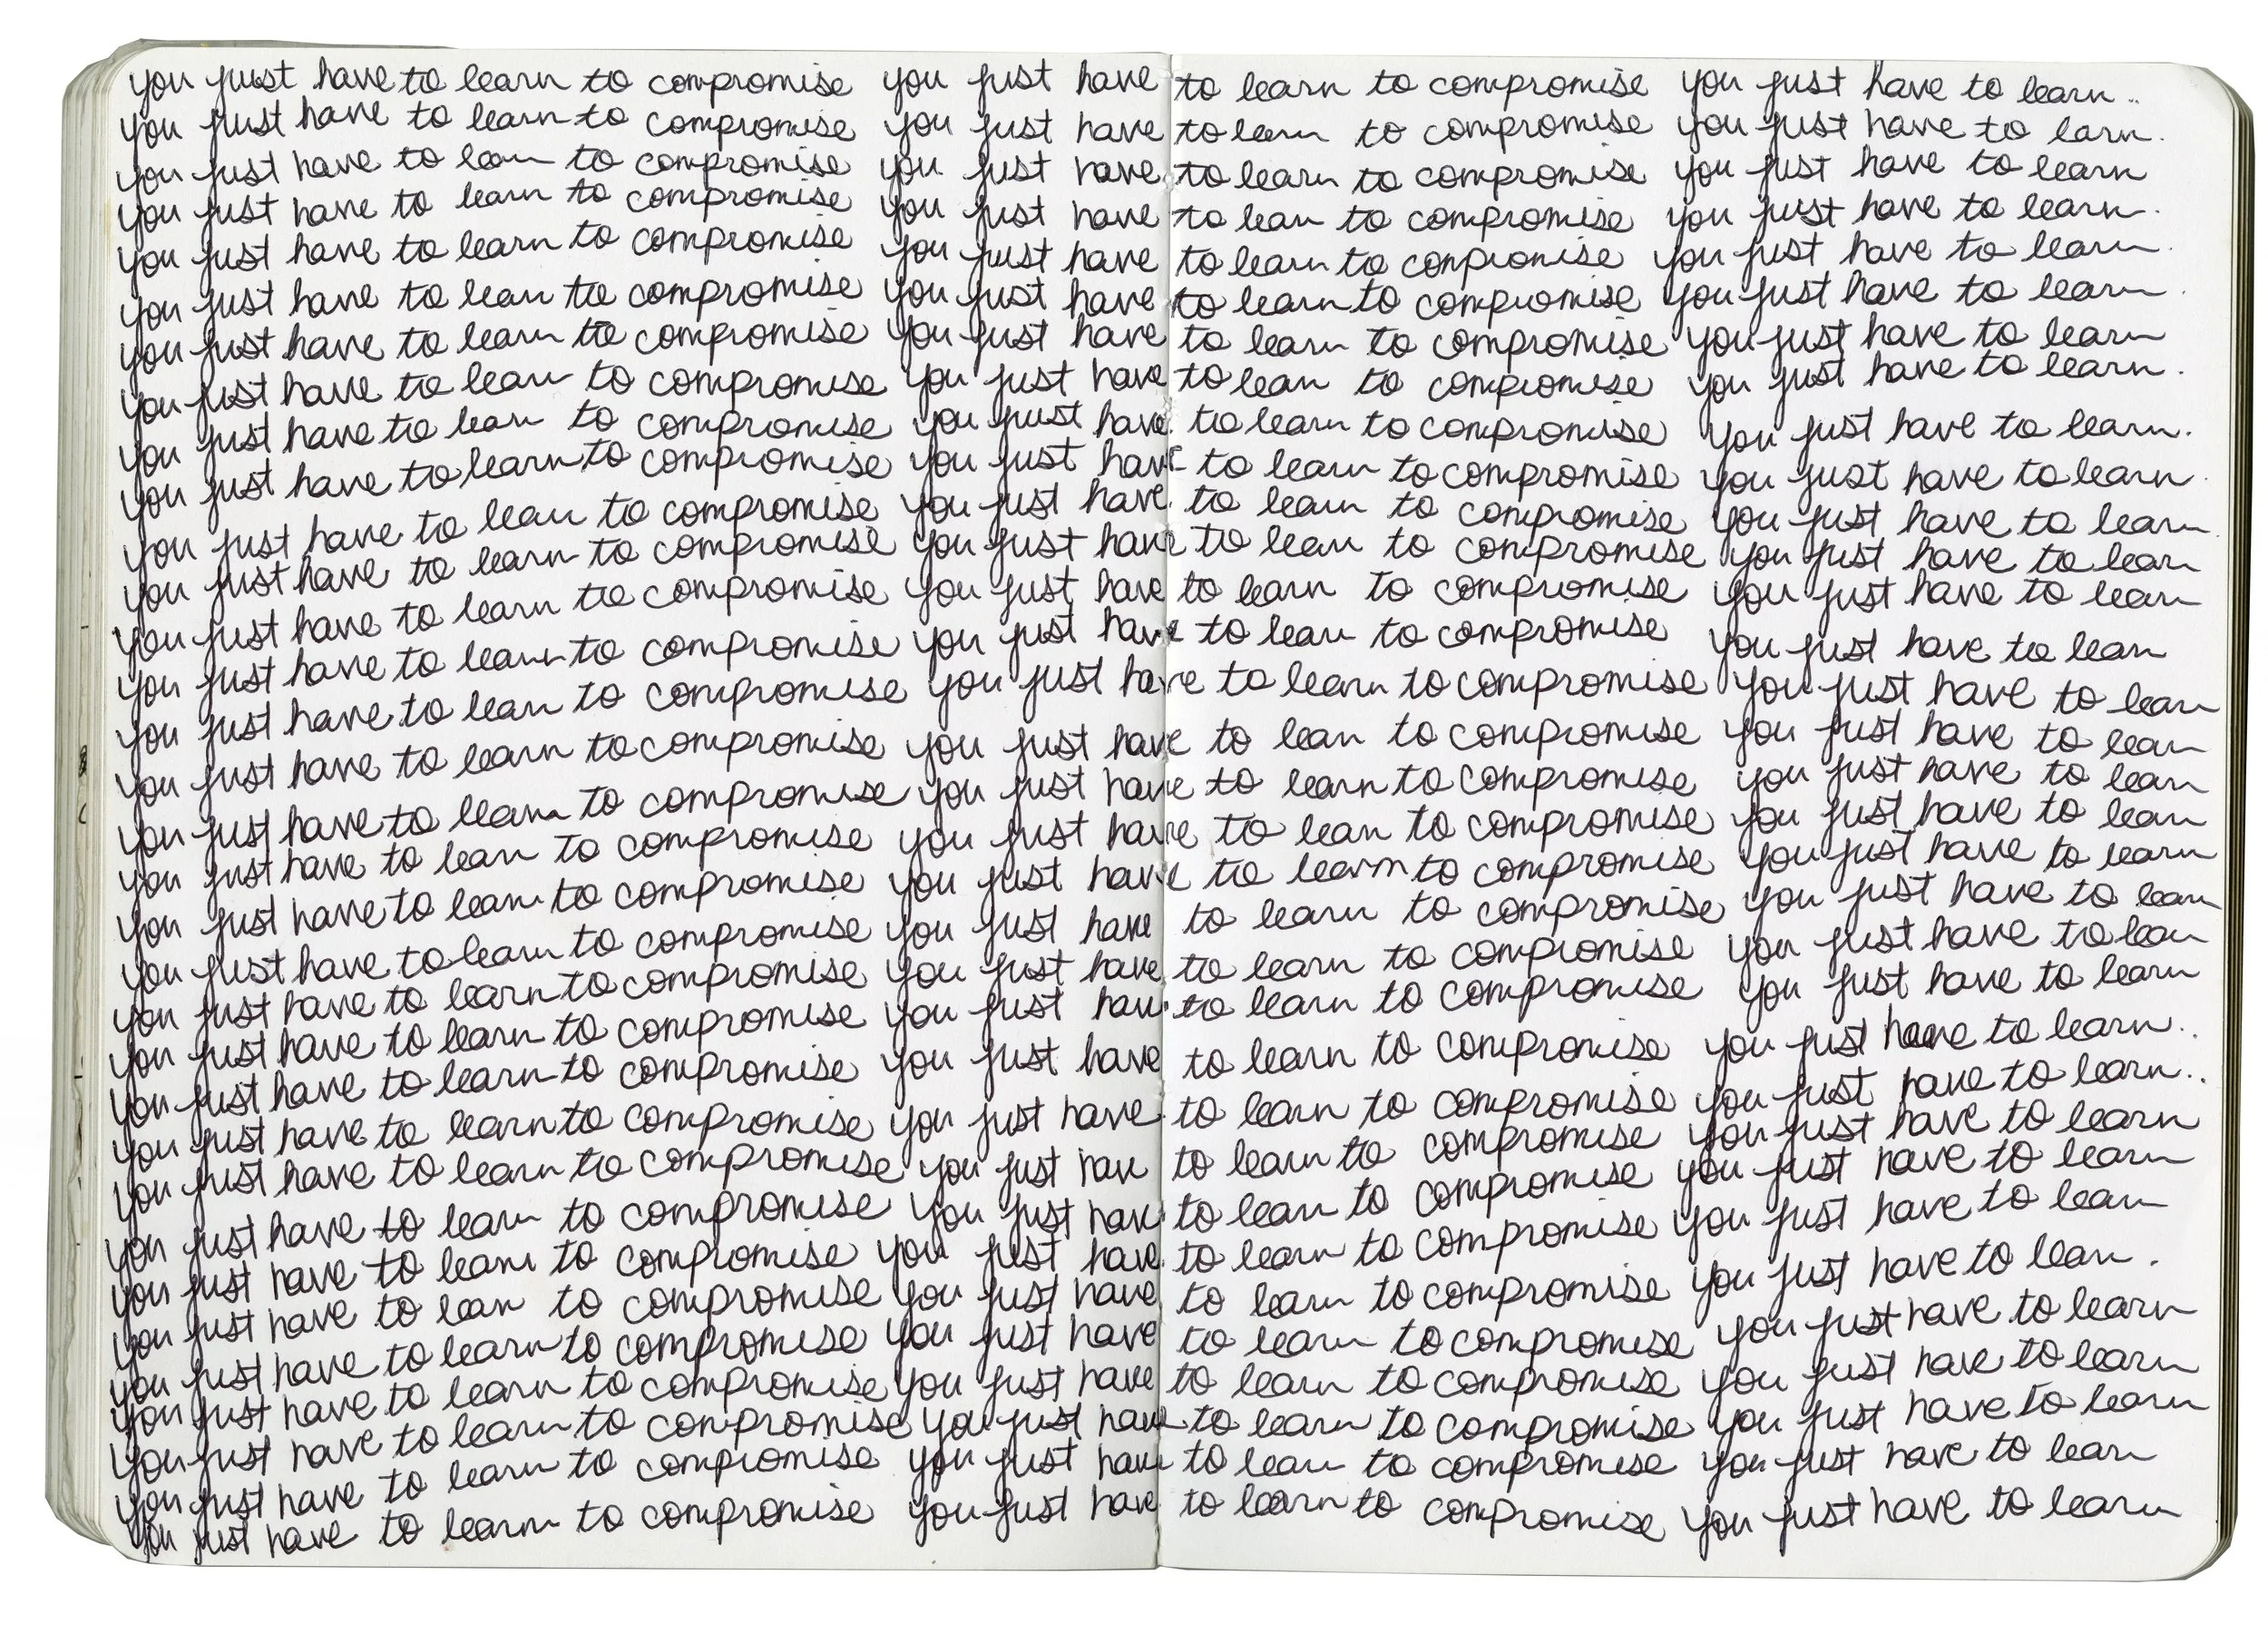 you just have to learn to compromise you just have to learn to compromise you just have to learn..
you just have to learn to compromise you just have to learn to compromise you just have to larn.
you just have to learn to compromise you just have to learn to compromise you just have to learn
you just have to learn to compromise you just have to learn to compromise you just have to learn.
you just have to learn to compromise you just have to learn to compromise you just have to learn.
you just have to learn to compromise you just have to learn to compromise you just have to learn.
you just have to learn to compromise you just have to learn to compromise you just have to learn
you just have to learn to compromise you just have to learn to compromise you just have to learn.
you just have to learn to compromise you just have to learn to compromise you just have to learn.
you just have to learn to compromise you just have to learn to compromise you just have to learn.
you just have to learn to compromise you just have to learn to compromise you just have to learn.
you just have to learn to compromise you just have to learn to compromise you just have to learn
you just have to learn to compromise you just have to learn to compromise you just have to learn
you just have to learn to compromise you just have to learn to compromise you just have to learn
you just have to learn to compromise you just have to learn to compromise you just have to learn
you just have to learn to compromise you just have to learn to compromise you just have to learn
you just have to learn to compromise you just have to learn to compromise you just have to learn
you just have to learn to compromise you just have to learn to compromise you just have to learn
you just have to learn to compromise you just have to learn to compromise you just have to learn
you just have to learn to compromise you just have to learn to compromise you just have to learn
you just have to learn to compromise you just have to learn to compromise you just have to learn
you just have to learn to compromise you just have to learn to compromise you just have to learn
you just have to learn to compromise you just have to learn to compromise you just have to learn..
you just have to learn to compromise you just have to learn to compromise you just have to learn..
you just have to learn to compromise you just have to learn to compromise you just have to learn
you just have to learn to compromise you just have to learn to compromise you just have to learn
you just have to learn to compromise you just have to learn to compromise you just have to learn
you just have to learn to compromise you just have to learn to compromise you just have to learn.
you just have to learn to compromise you just have to learn to compromise you just have to learn
you just have to learn to compromise you just have to learn to compromise you just have to learn
you just have to learn to compromise you just have to learn to compromise you just have to learn
you just have to learn to compromise you just have to learn to compromise you just have to learn
you just have to learn to compromise you just have to learn to compromise you just have to learn